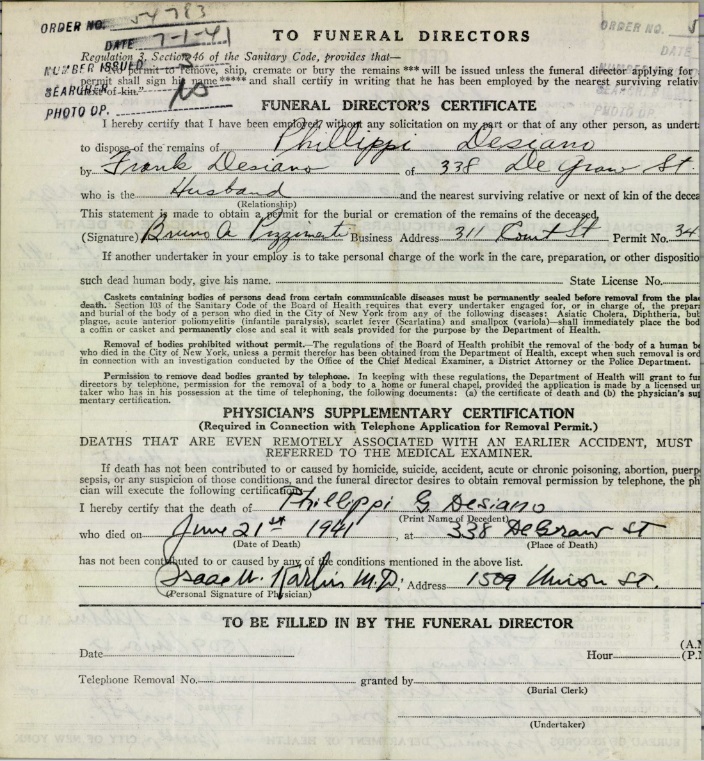 ORDER NO. 54783
DATE 7-1-41
NUMBER ISSUED 3
SEARCHER
PHOTO OP.
ORDER NO. 5
DATE
TO FUNERAL DIRECTORS
Regulation 3, Section 46 of the Sanitary Code, provides that—
"No permit to remove, ship, cremate or bury the remains *** will be issued unless the funeral director applying for
permit shall sign his name ***** and shall certify in writing that he has been employed by the nearest surviving relativ
next of kin."
FUNERAL DIRECTOR'S CERTIFICATE
I hereby certify that I have been employed, without any solicitation on my part or that of any other person, as undert
to dispose of the remains of Phillippi Desiano
by Frank Desiano of 338 De Graw St.
who is the Husband and the nearest surviving relative or next of kin of the decea
(Relationship)
This statement is made to obtain a permit for the burial or cremation of the remains of the deceased.
(Signature) Bruno A Business Address 311 Court St Permit No. 34
If another undertaker in your employ is to take personal charge of the work in the care, preparation, or other dispositio
such dead human body, give his name. State License No.
Caskets containing bodies of persons dead from certain communicable diseases must be permanently sealed before removal from the plac
death. Section 103 of the Sanitary Code of the Board of Health requires that every undertaker engaged for, or in charge of, the prepar
and burial of the body of a person who died in the City of New York from any of the following diseases: Asiatic Cholera, Diphtheria, bub
plague, acute anterior poliomyelitis (infantile paralysis), scarlet fever (Scarlatina) and smallpox (variola)—shall immediately place the bod
a coffin or casket and permanently close and seal it with seals provided for the purpose by the Department of Health.
Removal of bodies prohibited without permit.—The regulations of the Board of Health prohibit the removal of the body of a human be
who died in the City of New York, unless a permit therefor has been obtained from the Department of Health, except when such removal is ord
in connection with an investigation conducted by the Office of the Chief Medical Examiner, a District Attorney or the Police Department.
Permission to remove dead bodies granted by telephone. In keeping with these regulations, the Department of Health will grant to fun
directors by telephone, permission for the removal of a body to a home or funeral chapel, provided the application is made by a licensed un
taker who has in his possession at the time of telephoning, the following documents: (a) the certificate of death and (b) the physician's sup
mentary certification.
PHYSICIAN'S SUPPLEMENTARY CERTIFICATION
(Required in Connection with Telephone Application for Removal Permit.)
DEATHS THAT ARE EVEN REMOTELY ASSOCIATED WITH AN EARLIER ACCIDENT, MUST
REFERRED TO THE MEDICAL EXAMINER.
If death has not been contributed to or caused by homicide, suicide, accident, acute or chronic poisoning, abortion, puerp
sepsis, or any suspicion of those conditions, and the funeral director desires to obtain removal permission by telephone, the ph
cian will execute the following certification:
I hereby certify that the death of Phillippi G. Desiano
(Print Name of Decedent)
who died on June 21st 1941, at 338 DeGraw St
(Date of Death) (Place of Death)
has not been contributed to or caused by any of the conditions mentioned in the above list.
Isaac W. Karlin M.D., Address 1509 Union St.
(Personal Signature of Physician)
TO BE FILLED IN BY THE FUNERAL DIRECTOR
(A.M
Date Hour (P.M
Telephone Removal No. granted by
(Burial Clerk)
(Undertaker)